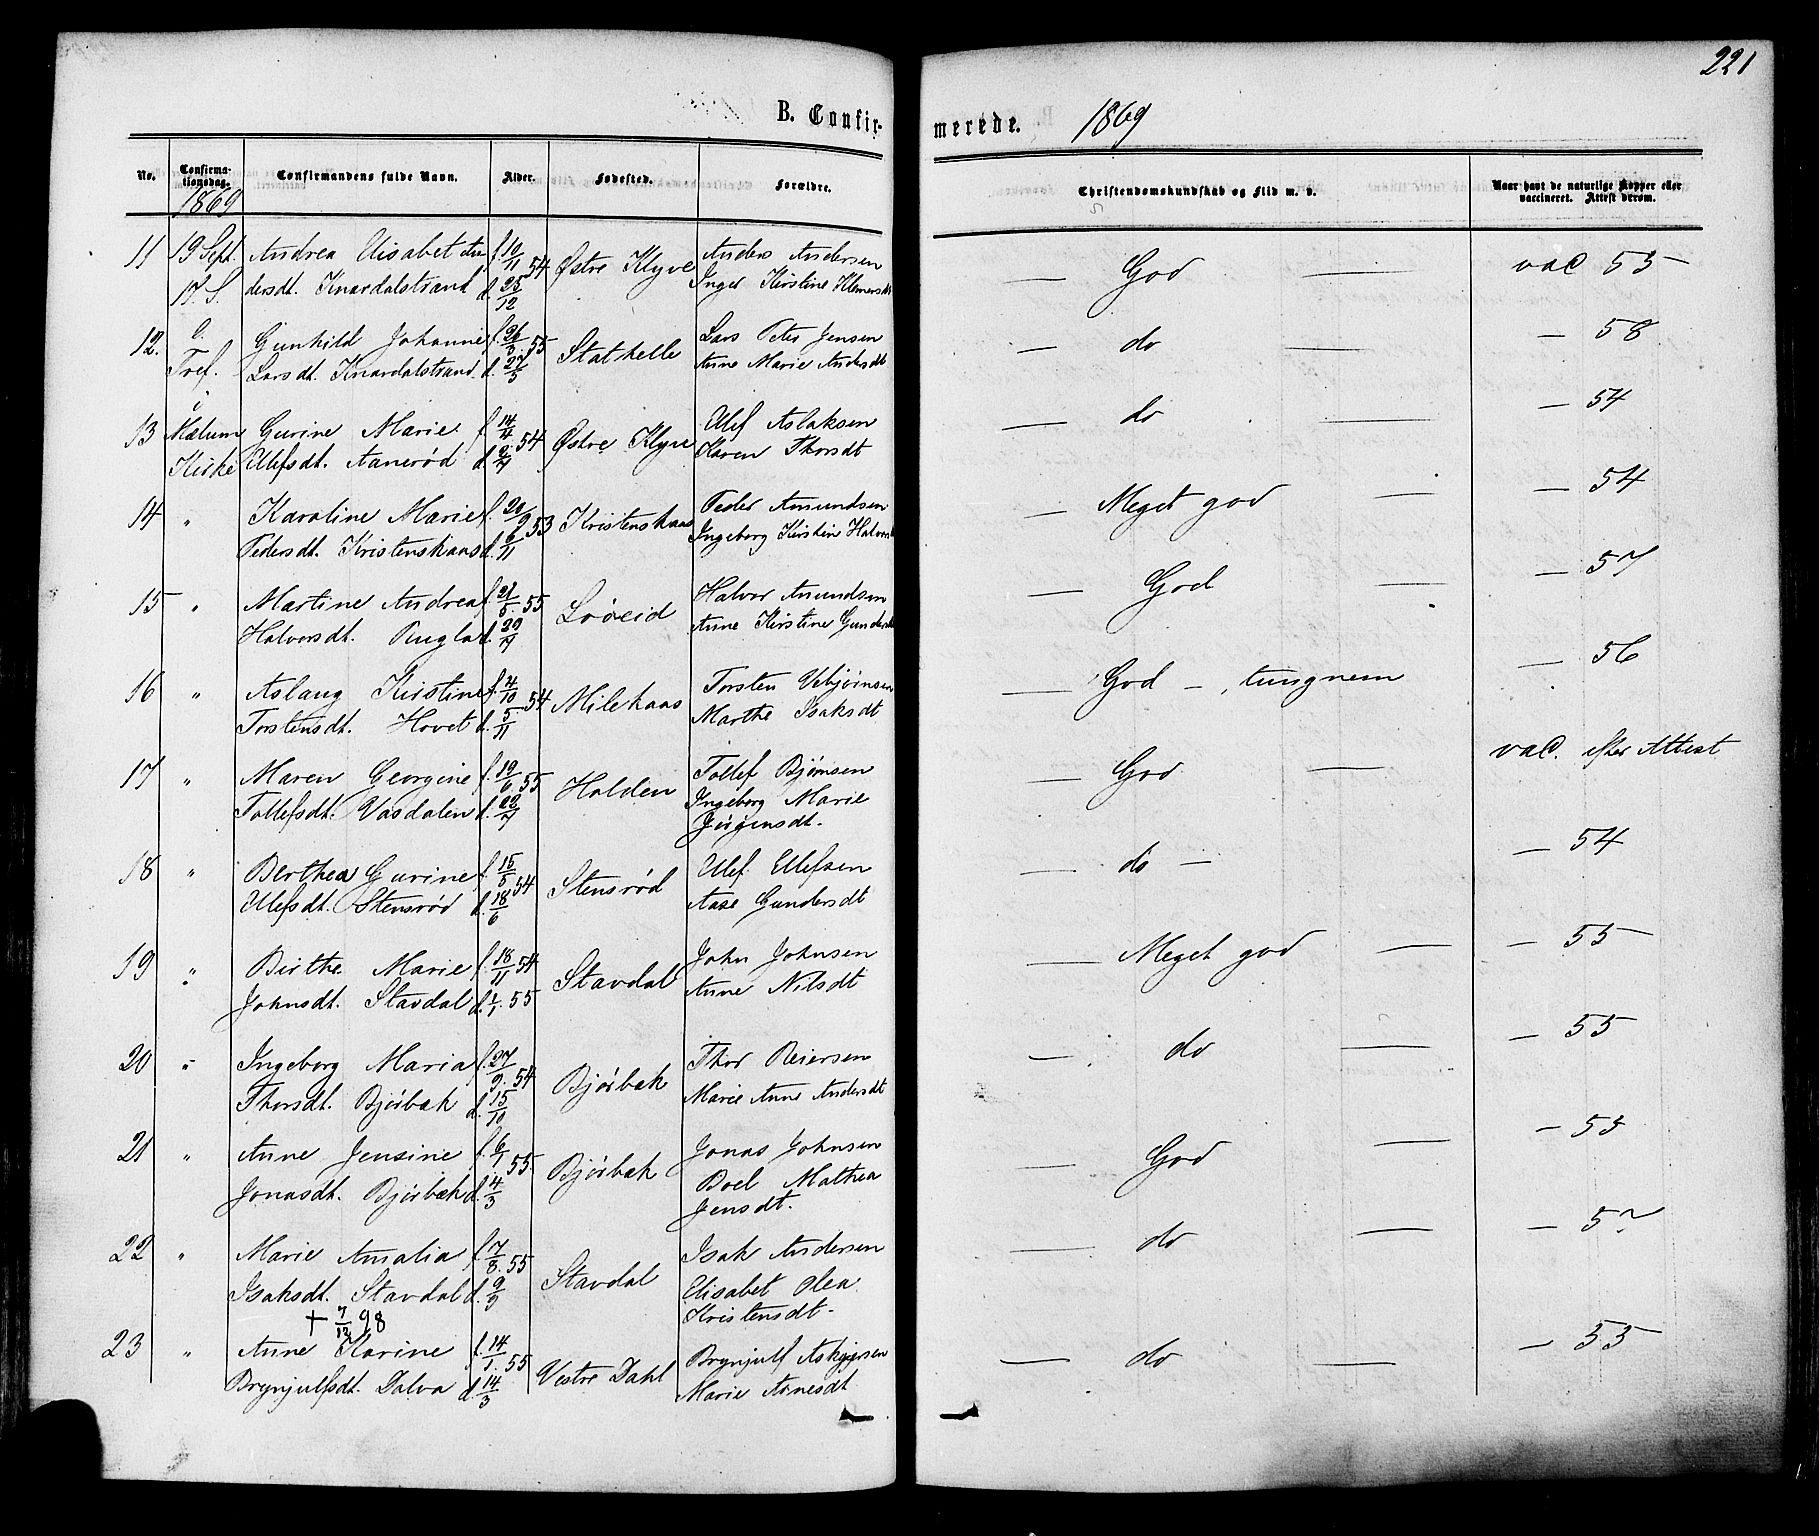 221
B. Confirmerede. 1869
No. Confirmationsdag. Confirmandens fulde Navn. Alder. Fødested. Forældre. Christendomskundskab og Flid m. v. Naar havt de naturlige Kopper eller vaccineret. Attest derom.
1869
11 19 Sept. Andrea Elisabet An- f. 10/11 54 Østre Klyve Anders Andersen — God — vac 55
17. S. dersdt. Knardalstrand d. 25/12 Inger Kirstine Klemetsdt
12. e. Gunhild Johanne f. 26/3 55 Stathelle Lars Peter Jensen — do — — 58
Tref. Larsdt. Knardalstrand d. 27/5 Anne Marie Andersdt
i
13 Mælum Gurine Marie f. 14/4 54 Østre Klyve Ulef Aslaksen — do — — 54
Kirke Ulefsdt. Aanerød d. 2/7 Karen Thorsdt
14 " Karoline Marie f. 20/9 53 Kristenskaas Peder Amundsen — Meget god — — 54
Pedersdt. Kristenskaas d. 6/11 Ingeborg Kirstine Halvorsdt
15 " Martine Andrea f. 21/5 55 Løveid Halvor Amundsen — God — — 57
Halvorsdt. Pugla d. 29/7 Anne Kirstine Gundersdt
16 " Aslaug Kirstine f. 4/10 54 Milekaas Torsten Vebjørnsen — God —, tungnem — 56
Torstensdt. Hovet d. 5/11 Marthe Isaksdt
17 " Maren Georgine f. 19/6 55 Holden Tollef Bjørnsen — God — vac. efter Attest
Tollefsdt. Vasdalen d. 22/7 Ingeborg Marie
Jørgensdt.
18 " Berthea Gurine f. 15/5 54 Stensrød Ulef Ulefsen — do — — 54
Ulefsdt. Stensrød d. 18/6 Aase Gundersdt
19 " Birthe Marie f. 18/11 54 Stavdal John Johnsen — Meget god — — 55
Johnsdt. Stavdal d. 1/1. 55 Anne Nilsdt
20 " Ingeborg Maria f. 27/9 54 Bjørbæk Thor Reiersen — do — — 55
Thorsdt. Bjørbæk d. 15/10 Marie Anne Andersdt
21 " Anne Jensine f. 6/1 55 Bjørbæk Jonas Johnsen — God — — 55
Jonasdt. Bjørbæk d. 4/3 Boel Mathea
Jensdt.
22 " Marie Amalia f. 7/8 55 Stavdal Isak Andersen — do — — 57
Isaksdt. Stavdal d. 9/9 Elisabet Olea
+ 7/12 98 Kristensdt.
23 " Anne Karine f. 14/1 55 Vestre Dahl Brynjulf Askjersen — do — — 55
Brynjulfsdt. Dalva d. 14/3 Marie Arnesdt